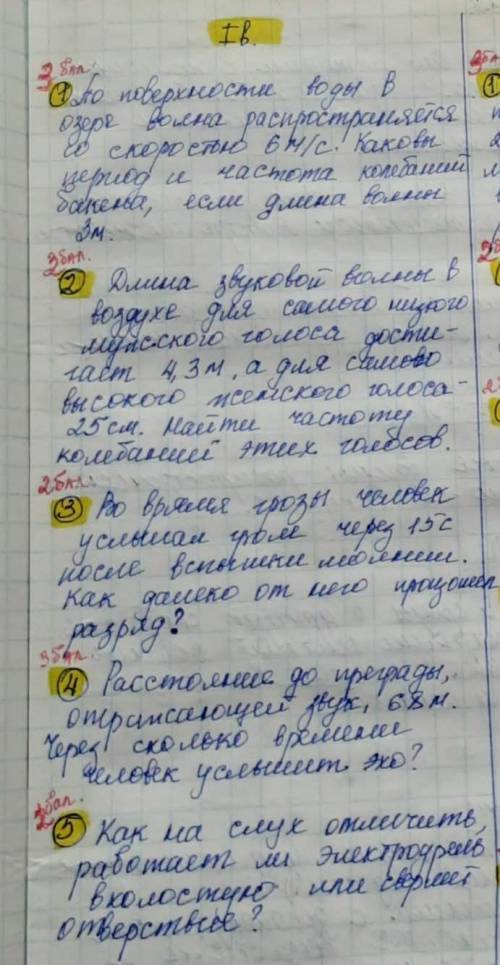 I в.
3 бал.
① По поверхности воды в
озере волна распространяется
со скоростью 6 м/с. Каковы
период и частота колебаний
бакена, если длина волны
3м.
3 бал.
② Длина звуковой волны в
воздухе для самого низкого
мужского голоса дости-
гает 4,3 м, а для самого
высокого женского голоса-
25 см. Найти частоту
колебаний этих голосов.
2 бал.
③ Во время грозы человек
услышал гром через 15 с
после вспышки молнии.
Как далеко от него произошел
разряд?
3 бал.
④ Расстояние до преграды,
отражающей звук, 68 м.
Через сколько времени
человек услышит эхо?
2 бал.
⑤ Как на слух отличить,
работает ли электродрель
вхолостую или сверлит
отверстие?